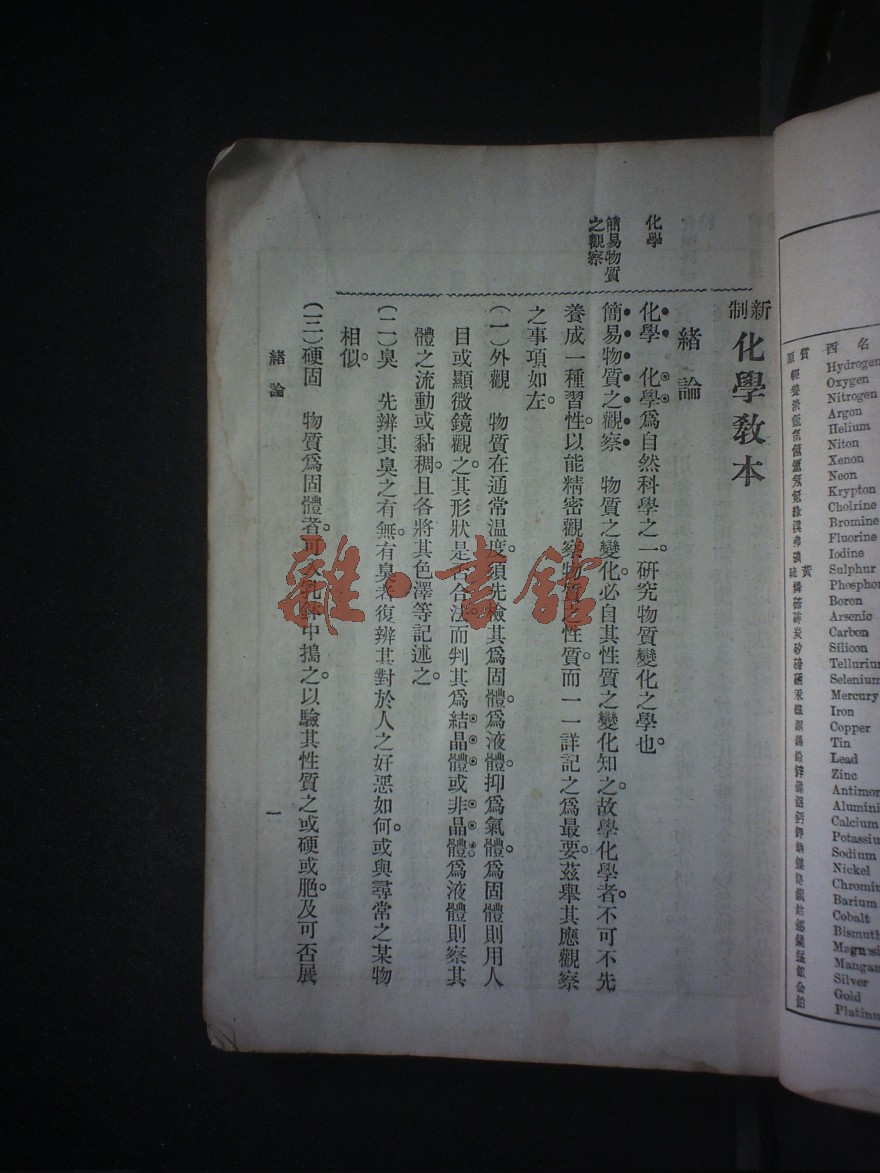 新制化學教本
緒論
化學
化學　化學爲自然科學之一。研究物質變化之學也。
簡易物質
之觀察
簡易物質之觀察　物質之變化。必自其性質之變化知之。故學化學者。不可不先
養成一種習性。以能精密觀察物質之性質。而一一詳記之爲最要。茲舉其應觀察
之事項如左。
(一)外觀　物質在通常温度。須先檢其爲固體。爲液體。抑爲氣體。爲固體則用人
目或顯微鏡觀之。其形狀是否合法。而判其爲結晶體或非晶體。爲液體則察其
體之流動或黏稠。且各將其色澤等記述之。
(二)臭　先辨其臭之有無。有臭者復辨其對於人之好惡如何。或與尋常之某物
相似。
(三)硬固　物質爲固體者。可入乳鉢中搗之。以驗其性質之或硬或脆。及可否展
緒論
一
雜·書館
原質　西名
Hydrogen
Oxygen
Nitrogen
Argon
Helium
Niton
Xenon
Neon
Krypton
Cholrine
Bromine
Fluorine
Iodine
硫黃 Sulphur
Phosphor
Boron
Arsenic
炭 Carbon
矽 Silicon
Tellurium
Selenium
汞 Mercury
鐵 Iron
銅 Copper
錫 Tin
鉛 Lead
鋅 Zinc
Antimon
鋁 Alumini
鈣 Calcium
鉀 Potassiu
鈉 Sodium
鎳 Nickel
Chromiu
鋇 Barium
鈷 Cobalt
Bismuth
Magnesi
錳 Mangan
銀 Silver
金 Gold
鉑 Platinu